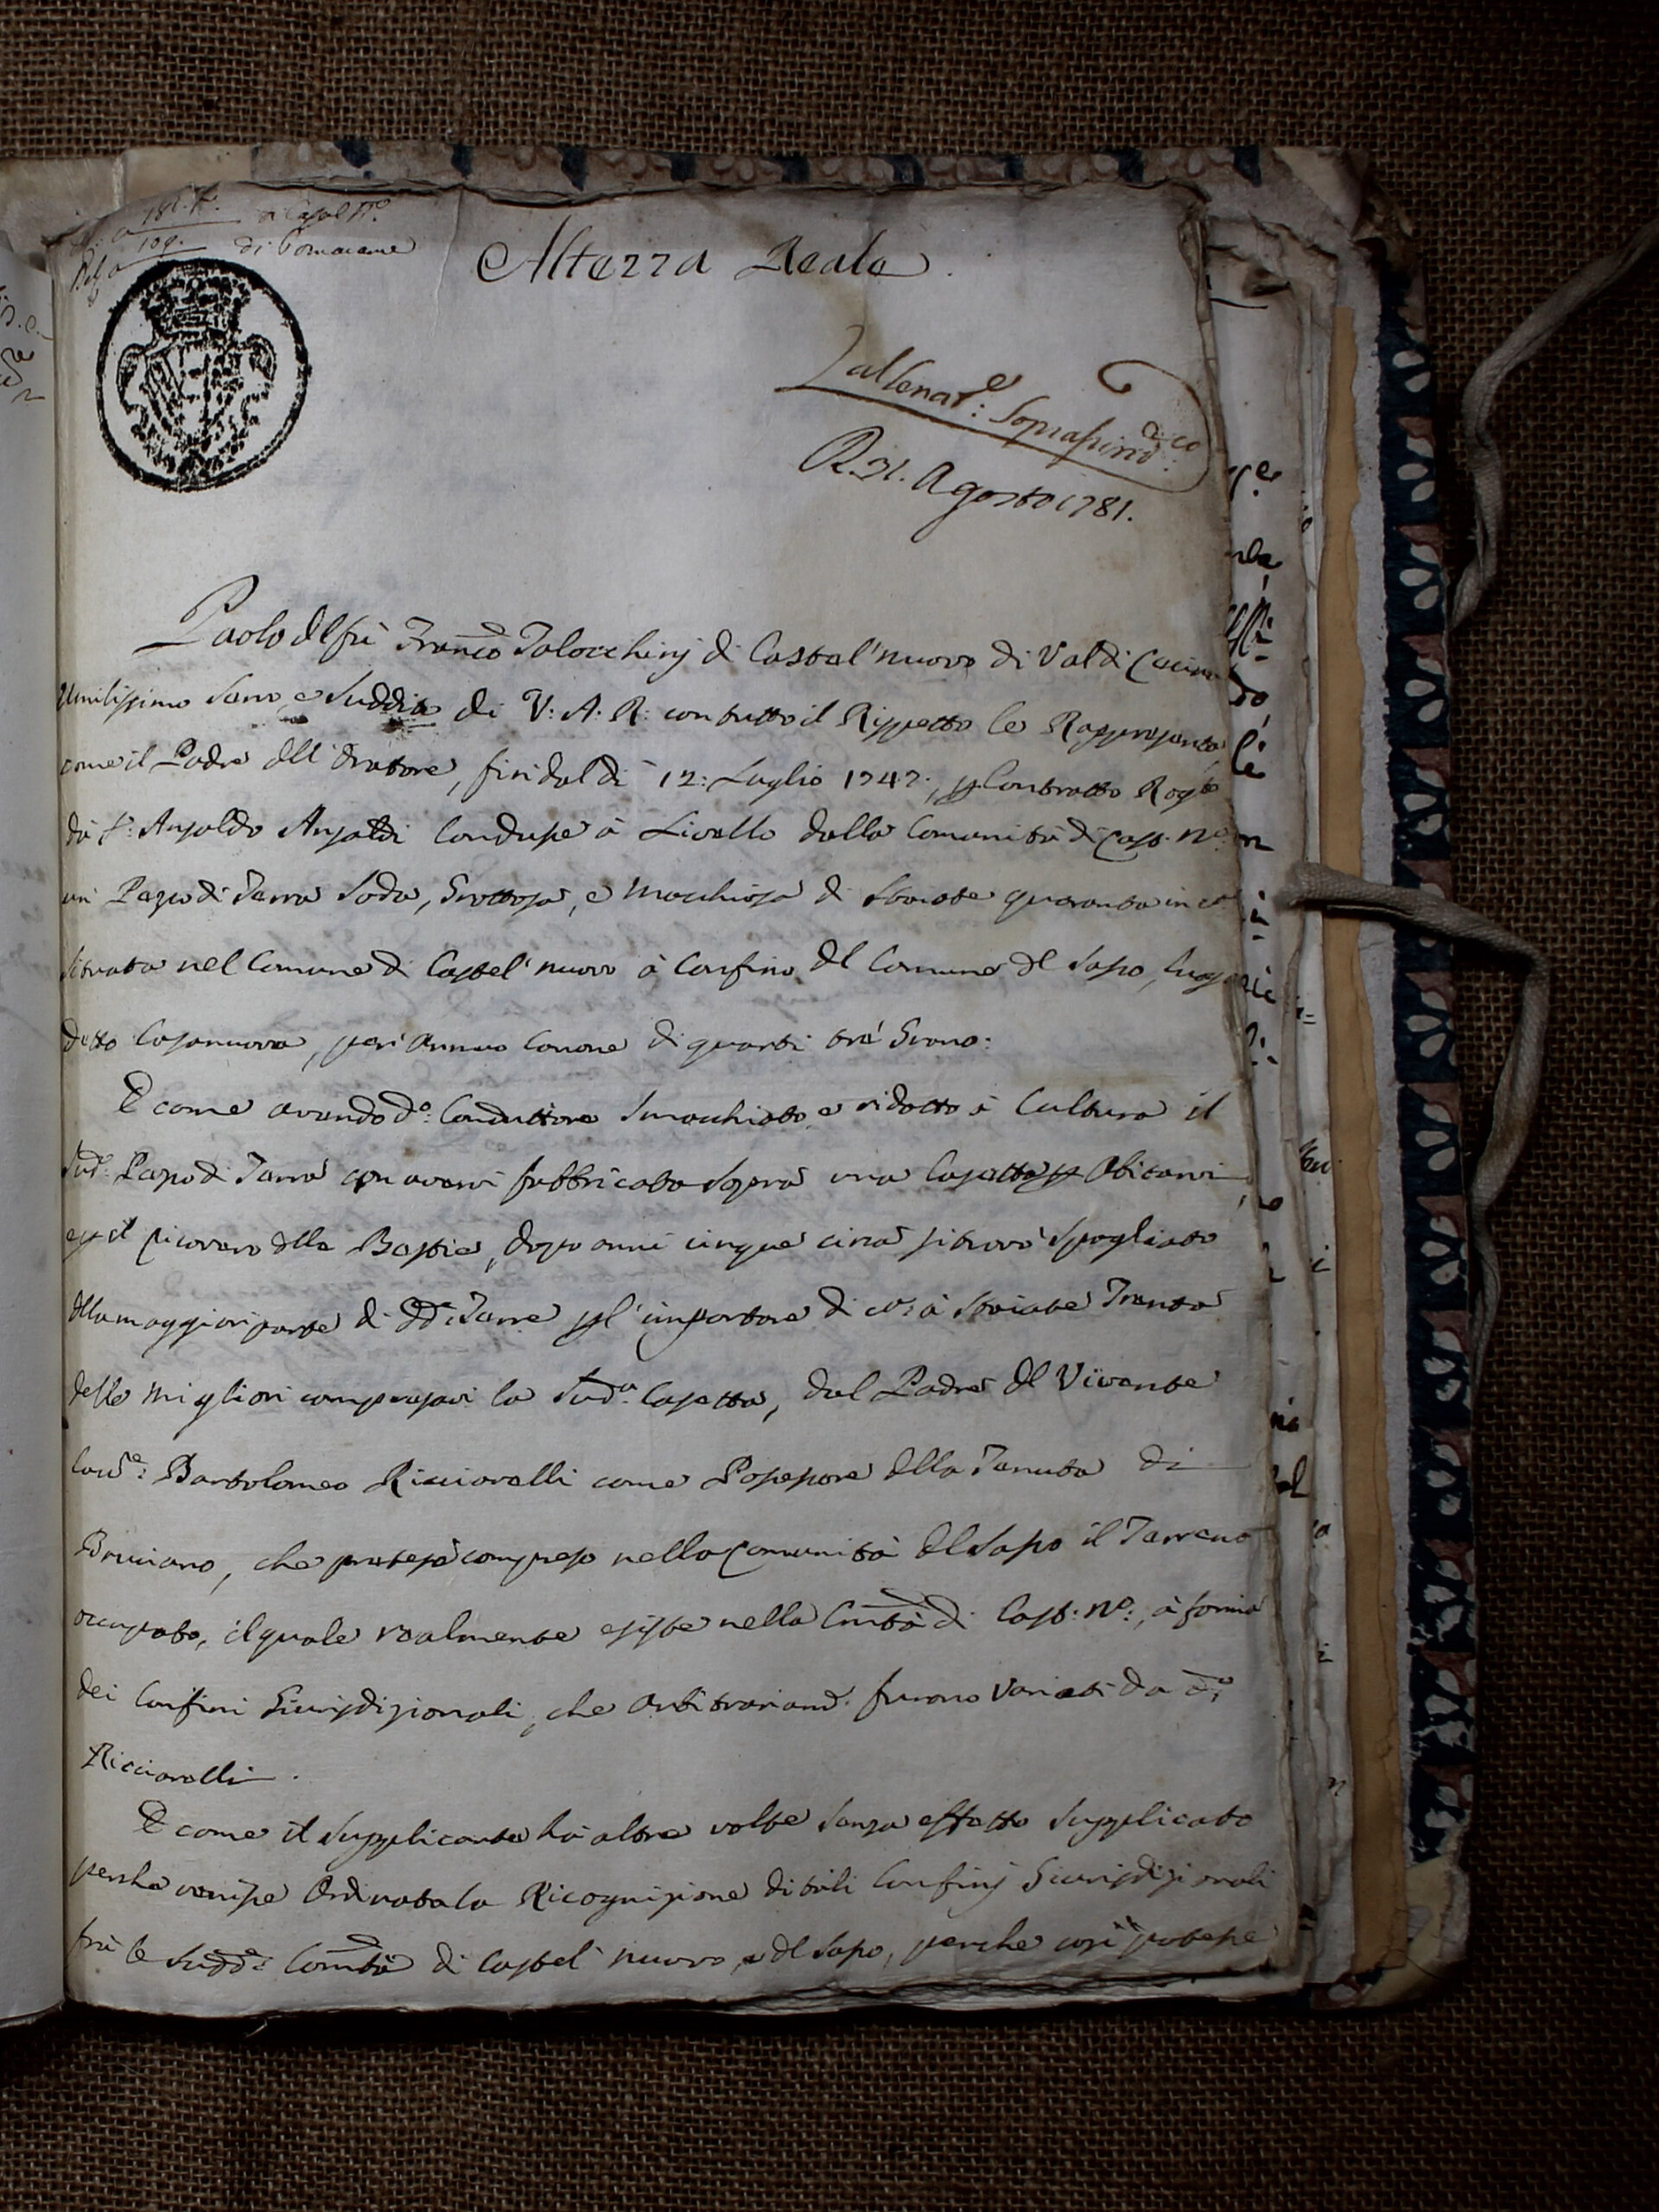 181. A.
109. di Pomarance
Altezza Reale.
Al Senat.e: Soprasind.co
R. 31. Agosto 1781.
Paolo del fù Franco Talocchinj di Castel'nuovo di Val di Cecina
Umilissimo Servo, e Suddito di V: A: R: con tutto il Rispetto le Rappresenta
come il Padre dell'Oratore, fin dal dì 12: Luglio 1747: p Contratto Rog.to
dà S: Ansaldo Ansaldi Condusse à Livello dalla Comunità di Cast. N.o
un Pezzo di Terra Soda, Grottosa, e Macchiosa di Staiate quaranta in ca
Situata nel Comune di Castel'nuovo à Confino del Comune del Sasso, luogo
detto Casanuova, per annuo Canone di quarti trè Grano:
E come avendo d.o: Conduttore Smacchiato, e ridotto à Cultura il
Sud.o Pezzo di Terra con avervi fabbricata Sopra una Casetta p Abitarvi
e p il ricovero delle Bestie, doppo anni cinque circa si trovò Spogliato
della maggior parte di dd.e Terre p l'importare di ca à Staiate Trenta
delle migliori compresavi la Sud.a Casetta, dal Padre del Vivente
Cav.e: Bartolomeo Ricciarelli come Possessore della Tenuta di
Bruciano, che pretese compreso nella Comunità del Sasso il Terreno
occupato, il quale realmente esiste nella Cmtà di Cast: N.o:, à forma
dei Confini Giurisdizionali, che arbitrariam.e furono Variati da d.o
Ricciarelli.
E come il Supplicante hà altre volte Senza effetto Supplicato
perche venisse Ordinata la Ricognizione di tali Confinj Giurisdizionali
frà le Sudd.e: Comtà di Castel'nuovo, e del Sasso, perche così potesse